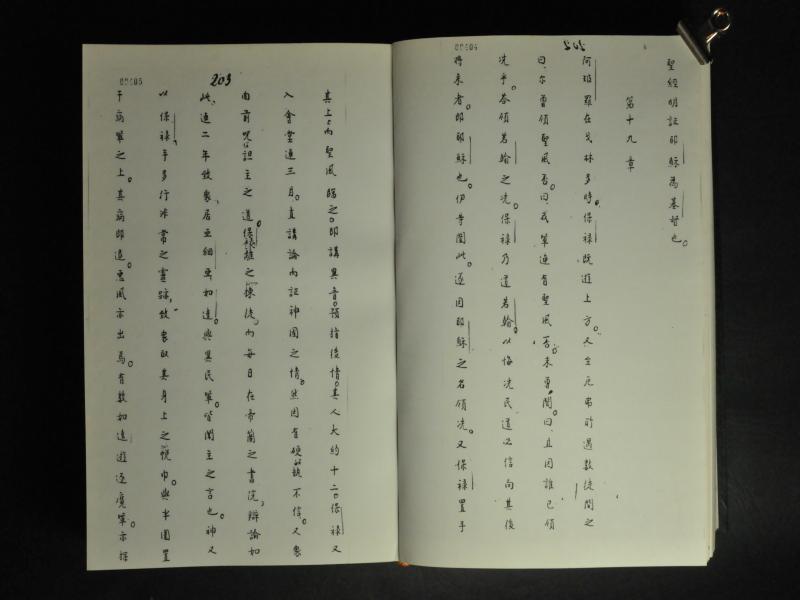 202
聖經明証耶穌為基督也。
第十九章
阿坡羅在戈林多時、保祿既遊上方。又至厄弗所遇數徒問之
曰、尔曽領聖風否。曰、我軰連有聖風否、未曽聞。曰、且因誰已領
洗乎。荅領若翰之洗。保祿乃道若翰。以悔洗民、道必信向其後
將来者。即耶穌也。伊等聞此。遂因耶穌之名領洗。又保祿置手
203
其上、而聖風臨之。即講異音。預指後情。其人大約十二。保祿又
入會堂連三月。直講論而証神國之情。然因有硬 不信。又衆
面前咒詛主之道。保祿離之 徒、而每日在帝蘭之書院、辯論如
此、連二年致衆、居亜細亜如達與異民軰。皆聞主之言也。神又
以保祿手多行非常之靈跡、致衆取其身上之 巾。與半圍置
于病軰之上。其病即退。悪風亦出焉。有数如達遊逐魔軰。亦探